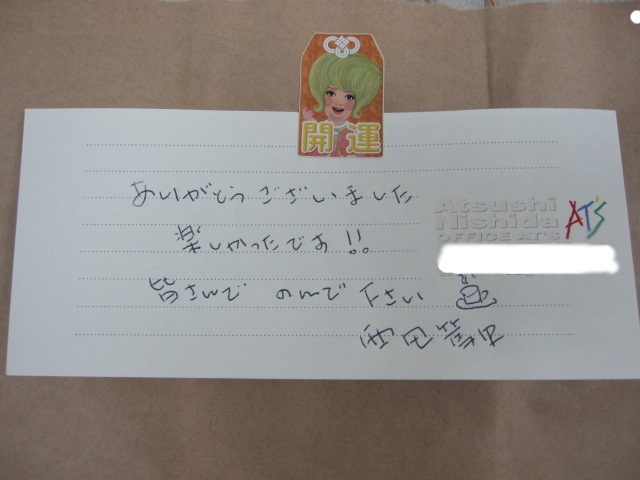 開運
ありがとうございました
楽しかったです!!
皆さんで のんで下さい
西田篤史
Atsushi
Nishida
OFFICE AT'S
AT'S